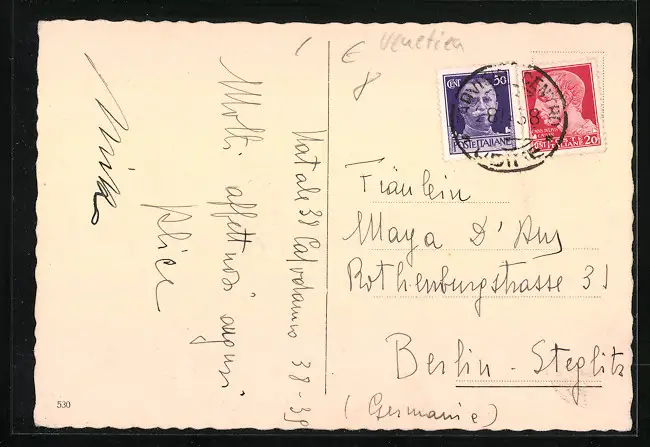 Venetien
€
8
Natale 38 Capodanno 38-39
Molti affettuosi auguri
Alice
CENT 50
POSTE ITALIANE
POSTE ITALIANE 20
UDINE
CENTRO
Fräulein
Maya D'
Rothenburgstrasse 31
Berlin-Steglitz
(Germania)
530